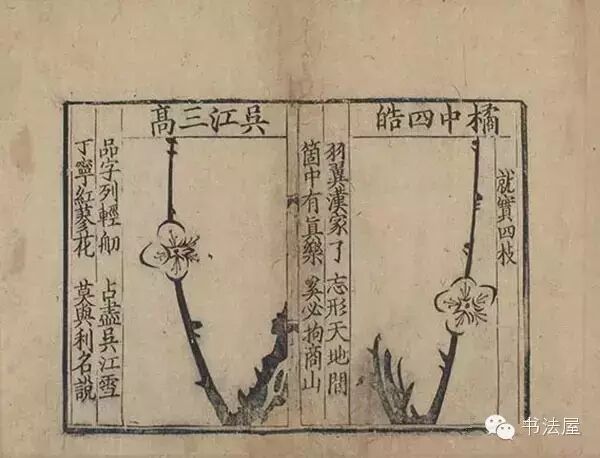 就實四枝
橘中四皓
羽翼漢家了 忘形天地間
箇中有眞樂 奚必拘商山
吳江三高
品字列輕舠 占盡吳江雪
丁寧紅蓼花 莫與利名說
书法屋